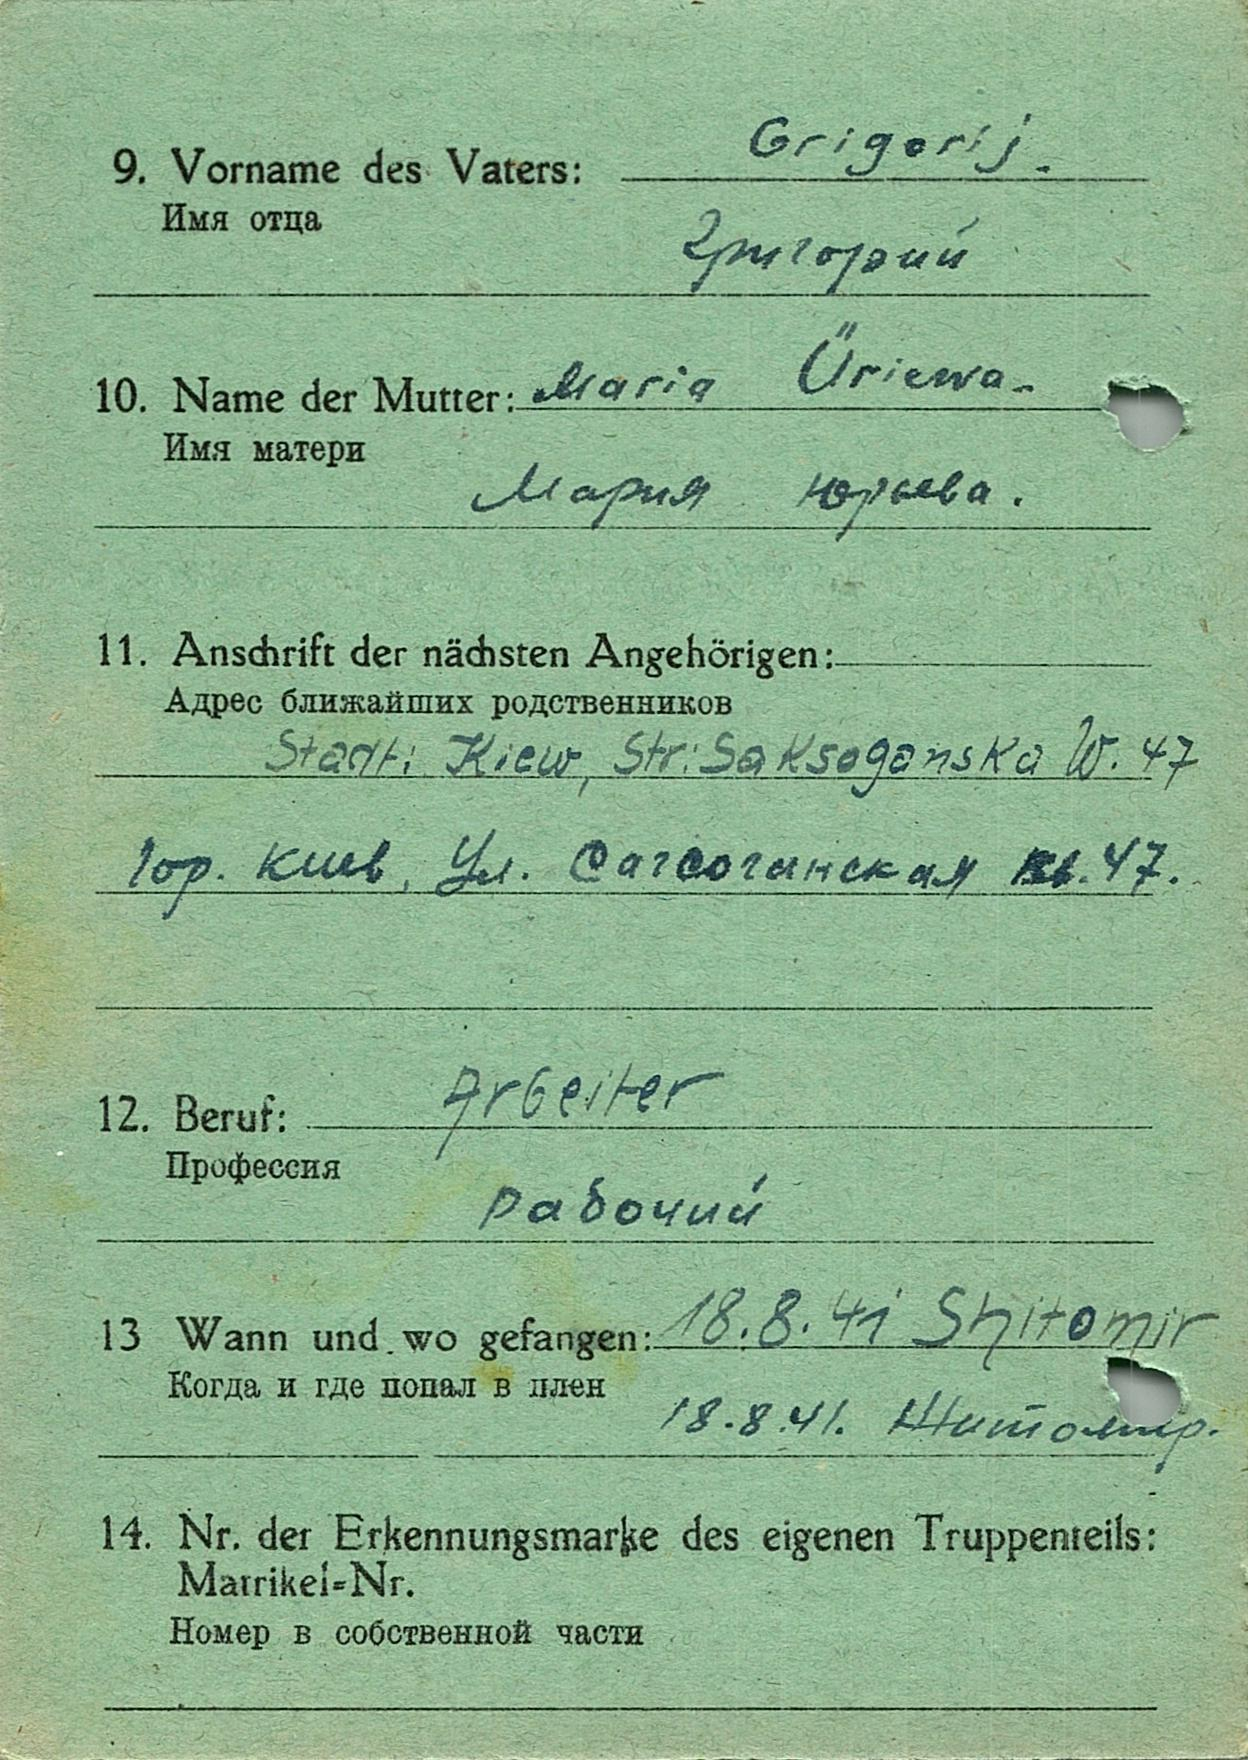 9. Vorname des Vaters: Grigorij.
Имя отца
Григорий
10. Name der Mutter: Maria Üriewa.
Имя матери
Мария Юрьева.
11. Anschrift der nächsten Angehörigen:
Адрес ближайших родственников
Stadt: Kiew, Str: Saksoganska W. 47
Гор. Киев, Ул. Сагсоганская кв. 47.
12. Beruf: Arbeiter
Профессия
Рабочий
13 Wann und wo gefangen: 18.8.41 Shitomir
Когда и где попал в плен
18.8.41. Житомир.
14. Nr. der Erkennungsmarke des eigenen Truppenteils:
Matrikel=Nr.
Номер в собственной части